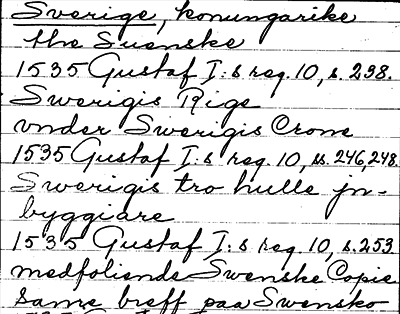 Sverige, konungarike
the Suenske
1535 Gustaf I:s reg. 10, s. 238.
Swerigis Rige
vnder Swerigis Crone
1535 Gustaf I:s reg. 10, ss. 246, 248.
Swerigis tro hulle jn-
byggiare
1535 Gustaf I:s reg. 10, s. 253
medfoliende Swenske Copie
Same breff paa Swensko